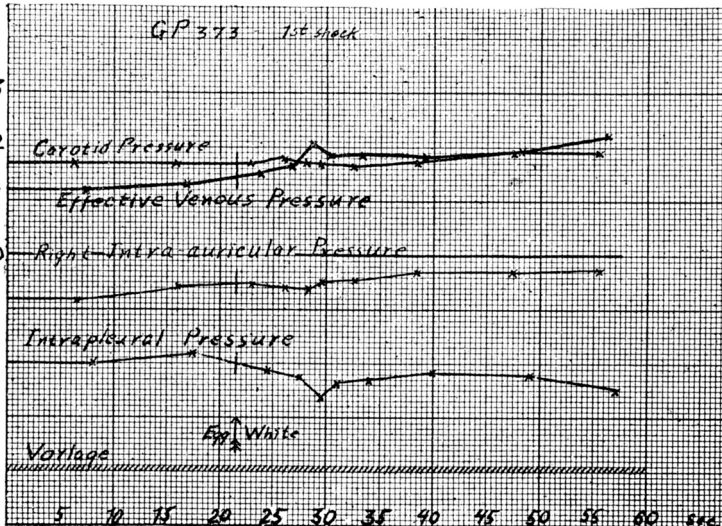 GP 373 1st shock
Carotid Pressure
Effective Venous Pressure
Right Intra-auricular Pressure
Intrapleural Pressure
Egg White
Vorlage
5 10 15 20 25 30 35 40 45 50 55 60 sec